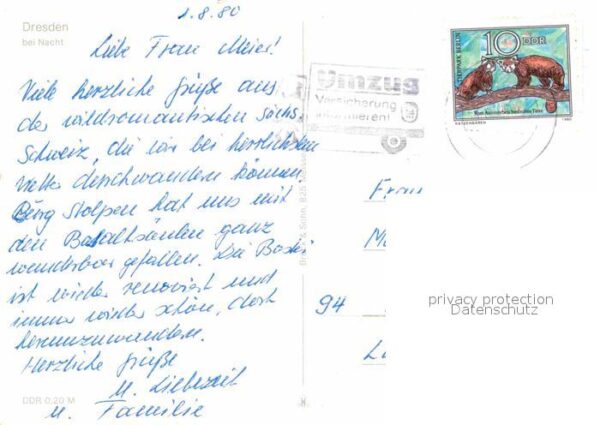 Dresden
bei Nacht
1.8.80
Liebe Frau Meier!
Viele herzliche Grüße aus
der wildromantischen sächs.
Schweiz, die wir bei herrlichstem
Wetter durchwandern können.
Burg Stolpen hat uns mit
den Basaltsäulen ganz
wunderbar gefallen. Die Bastei
ist wieder renoviert und
immer wieder schön, dort
herumzuwandern.
Herzliche Grüße
u. Familie
DDR 0,20 M
Umzug
Versicherung
informieren!
TIERPARK BERLIN
10 DDR
Vom Aussterben bedrohte Tiere
KATZENBÄREN
1980
Frau
94
privacy protection
Datenschutz